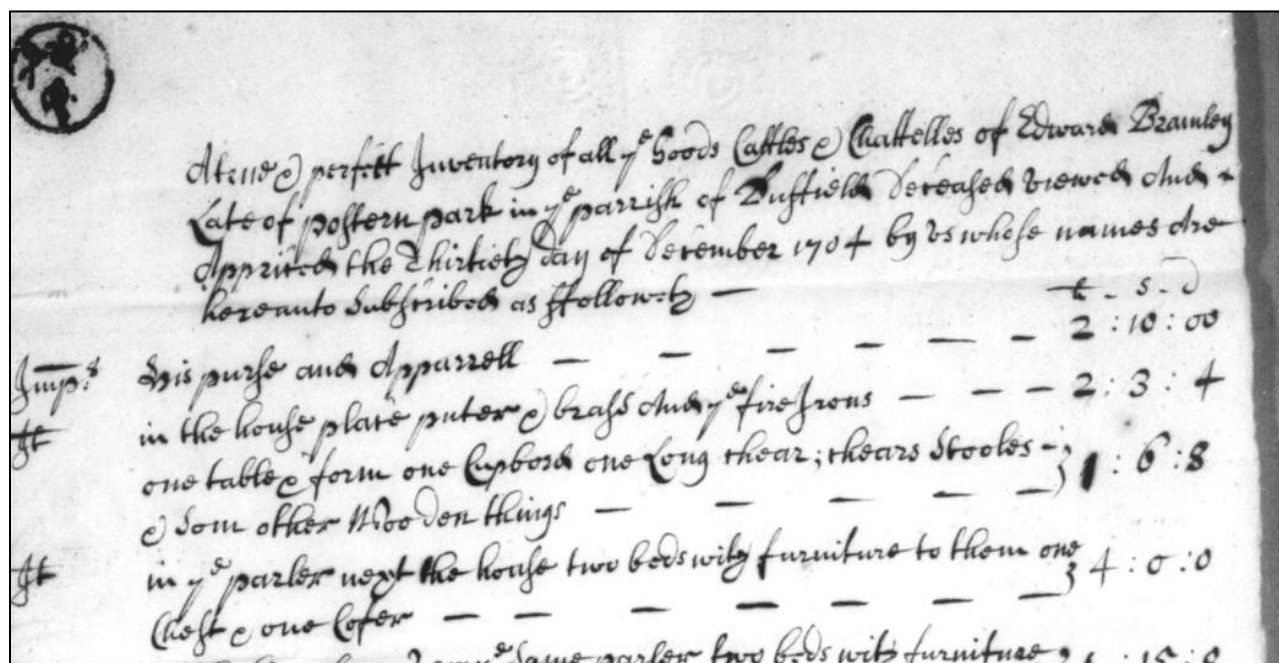 A true & perfect Inventory of all ye Goods Cattles & Chattelles of Edward Bramley
Late of postern park in ye parrish of Duffield Deceased viewed And
Apprised the Thirtieth day of December 1704 by us whose names Are
hereunto Subscribed as ffolloweth —
£ - s - d
Imps His purse and Apparrell — — — — — — 2 : 10 : 00
It in the house plate puter & brass And ye fire Irons — — — 2 : 3 : 4
one table & form one Cupbord one Long chear ; chears Stooles -
& Som other Wooden things — — — — — } 1 : 6 : 8
It in ye parler next the house two beds with furniture to them one
Chest & one Cofer — — — — — — — } 4 : 0 : 0
ye Same parler two beds with furniture